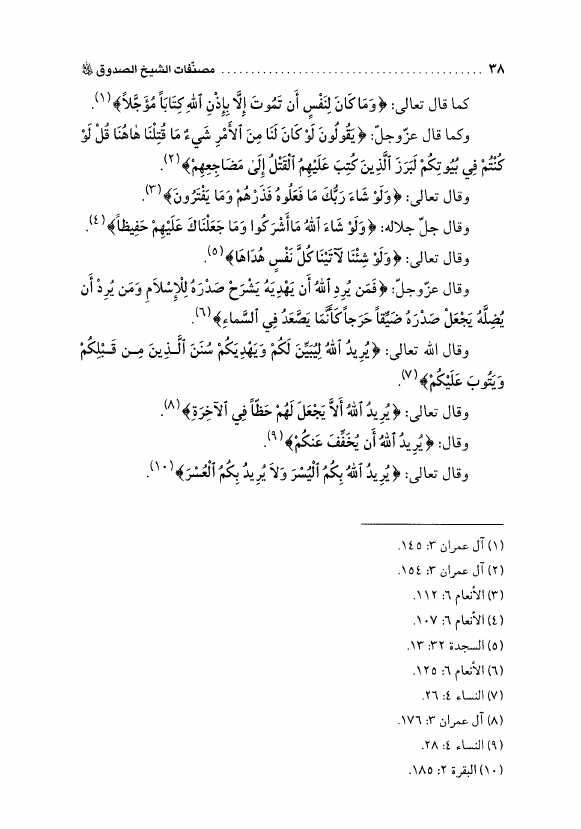 ٣٨ ............................................ مصنّفات الشيخ الصدوق
كما قال تعالى: ﴿وَمَا كَانَ لِنَفْسٍ أَن تَمُوتَ إِلَّا بِإِذْنِ اللهِ كِتَابَاً مُؤَجَّلاً﴾(١).
وكما قال عزّوجلّ: ﴿يَقُولُونَ لَوْ كَانَ لَنَا مِنَ الْأَمْرِ شَيءٌ مَا قُتِلْنَا هَاهُنَا قُلْ لَوْ
كُنْتُمْ فِي بُيُوتِكُمْ لَبَرَزَ الَّذِينَ كُتِبَ عَلَيْهِمُ الْقَتْلُ إِلَى مَضَاجِعِهِمْ﴾(٢).
وقال تعالى: ﴿وَلَوْ شَاءَ رَبُّكَ مَا فَعَلُوهُ فَذَرْهُمْ وَمَا يَفْتَرُونَ﴾(٣).
وقال جلّ جلاله: ﴿وَلَوْ شَاءَ اللهُ مَا أَشْرَكُوا وَمَا جَعَلْنَاكَ عَلَيْهِمْ حَفِيظاً﴾(٤).
وقال تعالى: ﴿وَلَوْ شِئْنَا لَآتَيْنَا كُلَّ نَفْسٍ هُدَاهَا﴾(٥).
وقال عزّوجلّ: ﴿فَمَن يُرِدِ اللهُ أَن يَهْدِيَهُ يَشْرَحْ صَدْرَهُ لِلْإِسْلَامِ وَمَن يُرِدْ أَن
يُضِلَّهُ يَجْعَلْ صَدْرَهُ ضَيِّقاً حَرَجاً كَأَنَّمَا يَصَّعَدُ فِي السَّماءِ﴾(٦).
وقال الله تعالى: ﴿يُرِيدُ اللهُ لِيُبَيِّنَ لَكُمْ وَيَهْدِيَكُمْ سُنَنَ الَّـذِينَ مِـن قَـبْلِكُمْ
وَيَتُوبَ عَلَيْكُمْ﴾(٧).
وقال تعالى: ﴿يُرِيدُ اللهُ أَلاَّ يَجْعَلَ لَهُمْ حَظّاً فِي الآخِرَةِ﴾(٨).
وقال: ﴿يُرِيدُ اللهُ أَن يُخَفِّفَ عَنكُمْ﴾(٩).
وقال تعالى: ﴿يُرِيدُ اللهُ بِكُمُ الْيُسْرَ وَلاَ يُرِيدُ بِكُمُ الْعُسْرَ﴾(١٠).
(١) آل عمران ٣: ١٤٥.
(٢) آل عمران ٣: ١٥٤.
(٣) الأنعام ٦: ١١٢.
(٤) الأنعام ٦: ١٠٧.
(٥) السجدة ٣٢: ١٣.
(٦) الأنعام ٦: ١٢٥.
(٧) النساء ٤: ٢٦.
(٨) آل عمران ٣: ١٧٦.
(٩) النساء ٤: ٢٨.
(١٠) البقرة ٢: ١٨٥.